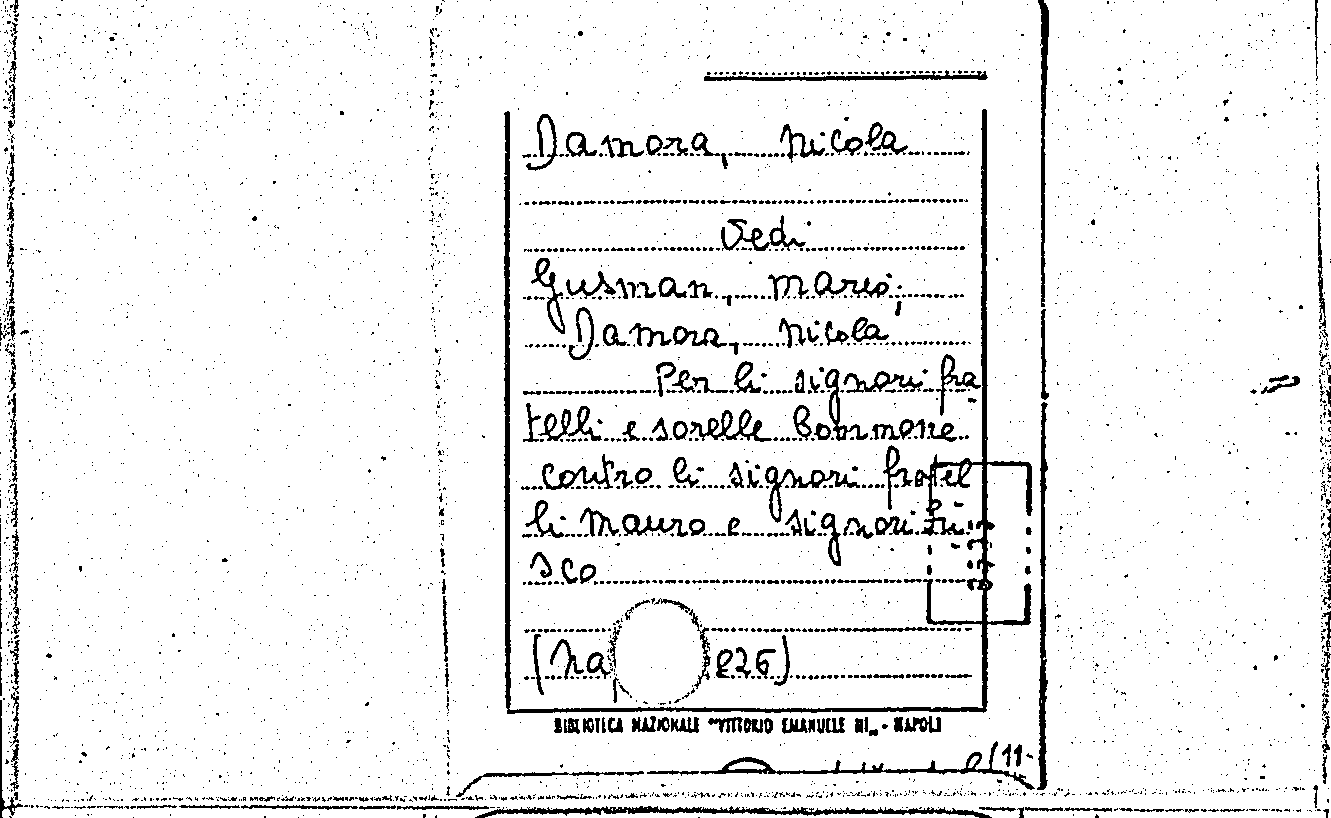 Damora, Nicola
Vedi
Gusman, Mario;
Damora, Nicola
Per li signori fra
telli e sorelle Bommone
contro li signori fratel
li Mauro e signori Fri
sco
(Na 826)
BIBLIOTECA NAZIONALE "VITTORIO EMANUELE III„ - NAPOLI
/11-